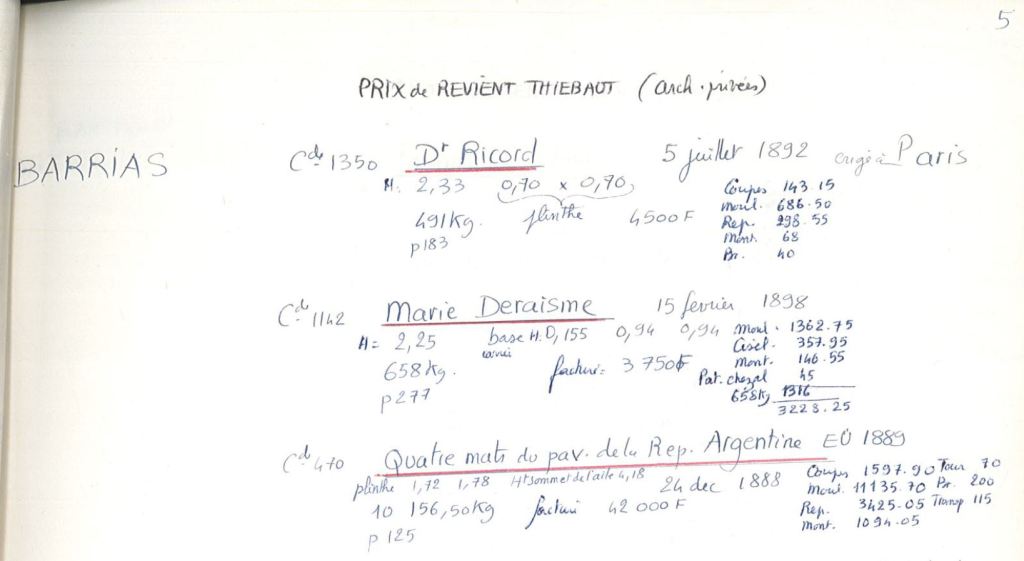 5
PRIX de REVIENT THIEBAUT (arch. privées)
BARRIAS
Cde 1350 Dr Ricord 5 juillet 1892 érigé à Paris
H: 2,33 0,70 x 0,70, Coupes 143.15
491Kg. plinthe 4500F moul. 686.50
p183 Rep. 298.55
Mont. 68
Br. 40
Cd 1142 Marie Deraisme 15 fevrier 1898
H= 2,25 base H.0,155 0,94 0,94 Moul. 1362.75
carré Cisel. 357.95
658Kg. facturé= 3 750F Mont. 146.55
p277 Pat. chezal 45
658Kg 1316
3228.25
Cd 470 Quatre mats du pav. de la Rep. Argentine EU 1889
plinthe 1,72 1,78 Ht sommet de l'aile 4,18 24 dec 1888 Coupes 1597.90 Tour 70
10 156,50Kg facturé 42 000F Moul. 11135.70 Br. 200
p 125 Rep. 3425.05 Transp 115
Mont. 1094.05